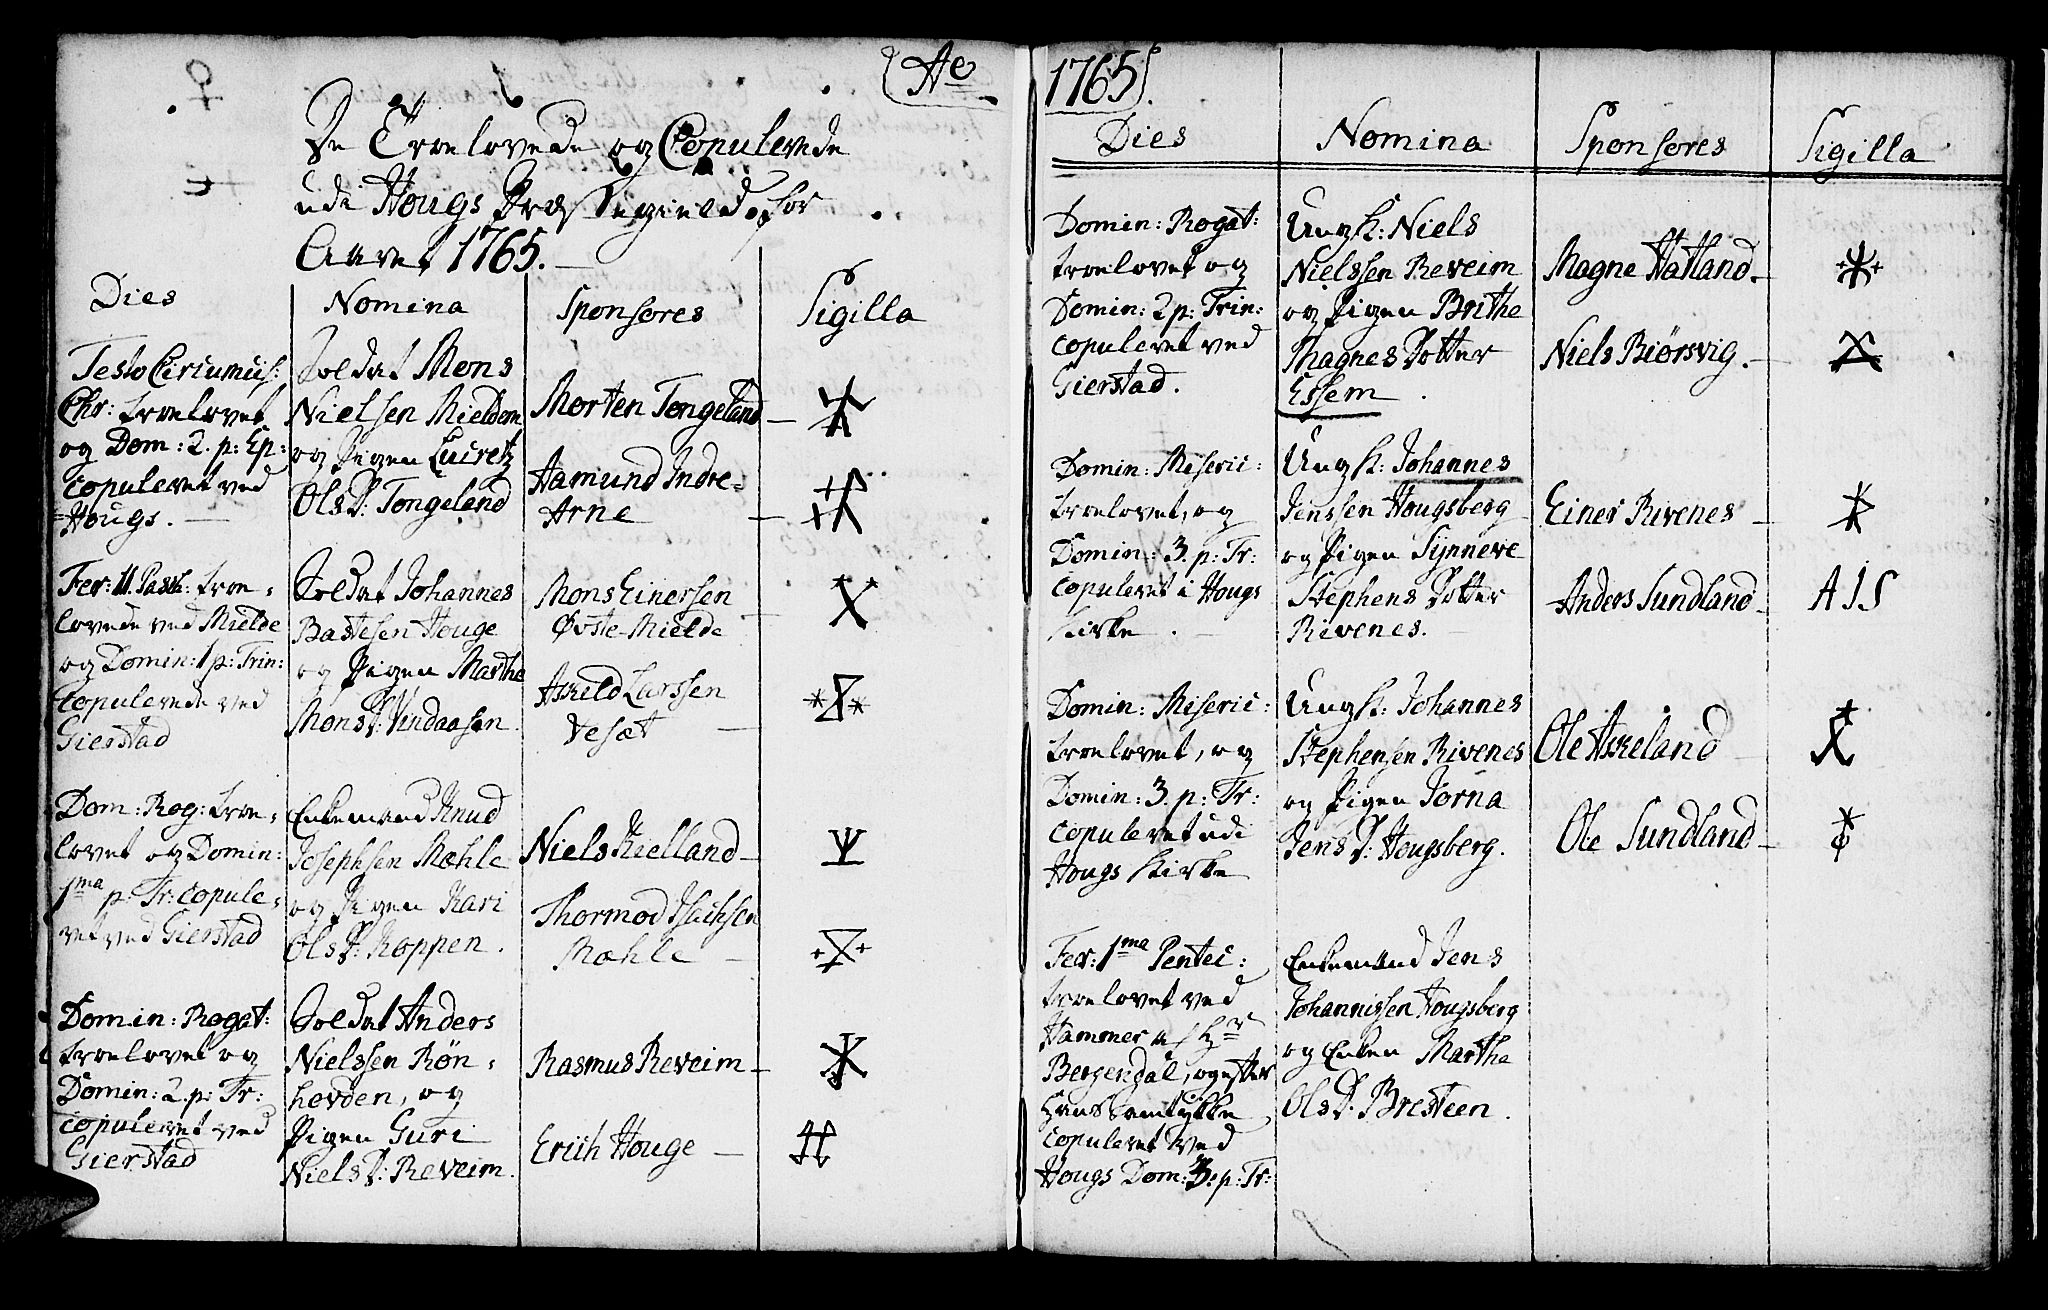 Ao
De Troelovede og Copulerede
udi Hougs Præstegield for
Aaret 1765.
Dies Nomina Sponsores Sigilla
Festo Circumcis:
Chr: troelovet
og Dom: 2. p: Ep:
copuleret ved
Hougs.
Soldat Mons
Nielsen Mieldem
og Pigen Lucretz
Ols D: Tongeland
Morten Tongeland
Aamund Indre-
Arne
Fer: II. Pasch: troe-
lovede ved Mielde
og Domin: 1 p: Trin:
copulerede ved
Gierstad
Soldat Johannes
Bastesen Houge
og Pigen Marthe
Mons D: Vindaasen
Mons Einersen
Øvste Mielde
Askeld Larssen
Vesæt
Dom: Rog: troe-
lovet og Domin:
1ma p: Tr: copule-
ret ved Gierstad
Enkemand Knud
Josephsen Mæhle
og Pigen Kari
Ols D: Koppen.
Niels Kielland
Thormod Isachsen
Mæhle
Domin: Rogat:
troelovet og
Domin: 2. p: Tr:
copuleret ved
Gierstad
Soldat Anders
Nielssen Røn-
hovden, og
Pigen Guri
Niels D: Reveim.
Rasmus Reveim
Erich Houge
1765.
Dies Nomina Sponsores Sigilla
Domin: Rogat:
troelovet og
Domin: 2 p: Trin:
copuleret ved
Gierstad.
Ung K: Niels
Nielssen Reveim
og Pigen Brithe
Magnes Dotter
Essem
Magne Hatland
Niels Biørsvig.
Domin: Miseric:
troelovet, og
Domin: 3. p: Tr:
copuleret i Hougs
Kirke.
Ung K: Johannes
Jenssen Hougsberg
og Pigen Synneve
Stephens Dotter
Rivenes.
Einer Rivenes
Anders Sundland
AIS
Domin: Miseric:
troelovet, og
Domin: 3. p: Tr:
copuleret udi
Hougs Kirke
Ung K: Johannes
Stephensen Rivenes
og Pigen Jorna
Jens D: Hougsberg.
Ole Askeland
Ole Sundland
Fer: 1ma Pentec:
troelovet ved
Hammer af Hr
Bergendal, og efter
Hans Samtykke
copuleret ved
Hougs Dom: 3. p: Tr:
Enkemand Jens
Johannissen Hougsberg
og Enken Marthe
Ols D: Bresteen.